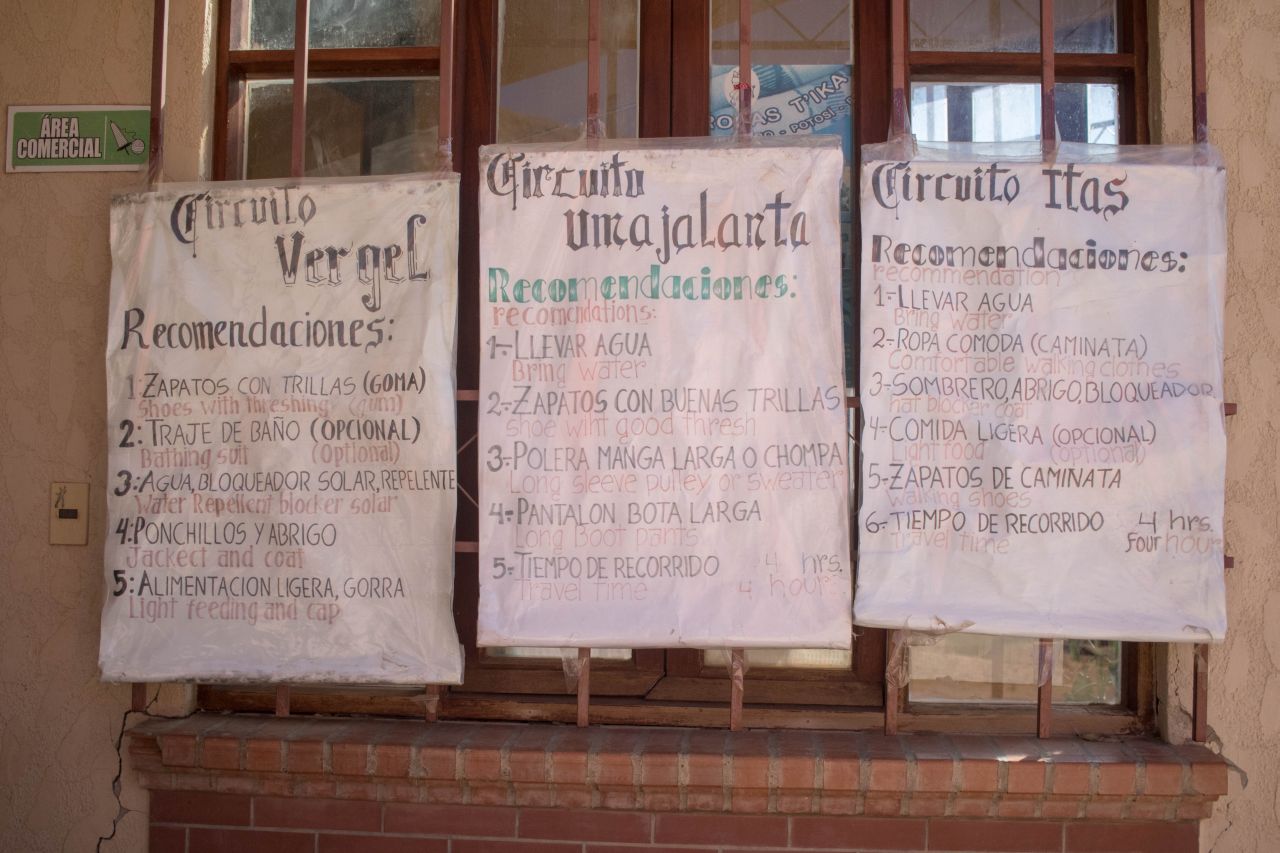 ÁREA
COMERCIAL
T'IKA
POTOSI
Circuito
Vergel
Recomendaciones:
1: ZAPATOS CON TRILLAS (GOMA)
Shoes with threshing (gum)
2: TRAJE DE BAÑO (OPCIONAL)
Bathing suit (Optional)
3: AGUA, BLOQUEADOR SOLAR, REPELENTE
Water Repellent blocker solar
4: PONCHILLOS Y ABRIGO
Jackect and coat
5: ALIMENTACION LIGERA, GORRA
Light feeding and cap
Circuito
Umajalanta
Recomendaciones:
recomendations:
1-. LLEVAR AGUA
Bring water
2-. ZAPATOS CON BUENAS TRILLAS
shoe wiht good thresh
3-. POLERA MANGA LARGA O CHOMPA
Long sleeve pulley or sweater
4-. PANTALON BOTA LARGA
Long Boot pants
5-. TIEMPO DE RECORRIDO 4 hrs.
Travel time 4 hours
Circuito Itas
Recomendaciones:
recommendation
1-. LLEVAR AGUA
Bring water
2-. ROPA COMODA (CAMINATA)
Comfortable walking clothes
3-. SOMBRERO, ABRIGO, BLOQUEADOR
hat blocker coat
4-. COMIDA LIGERA (OPCIONAL)
Light food (optional)
5-. ZAPATOS DE CAMINATA
walking shoes
6-. TIEMPO DE RECORRIDO 4 hrs.
Travel time four hours